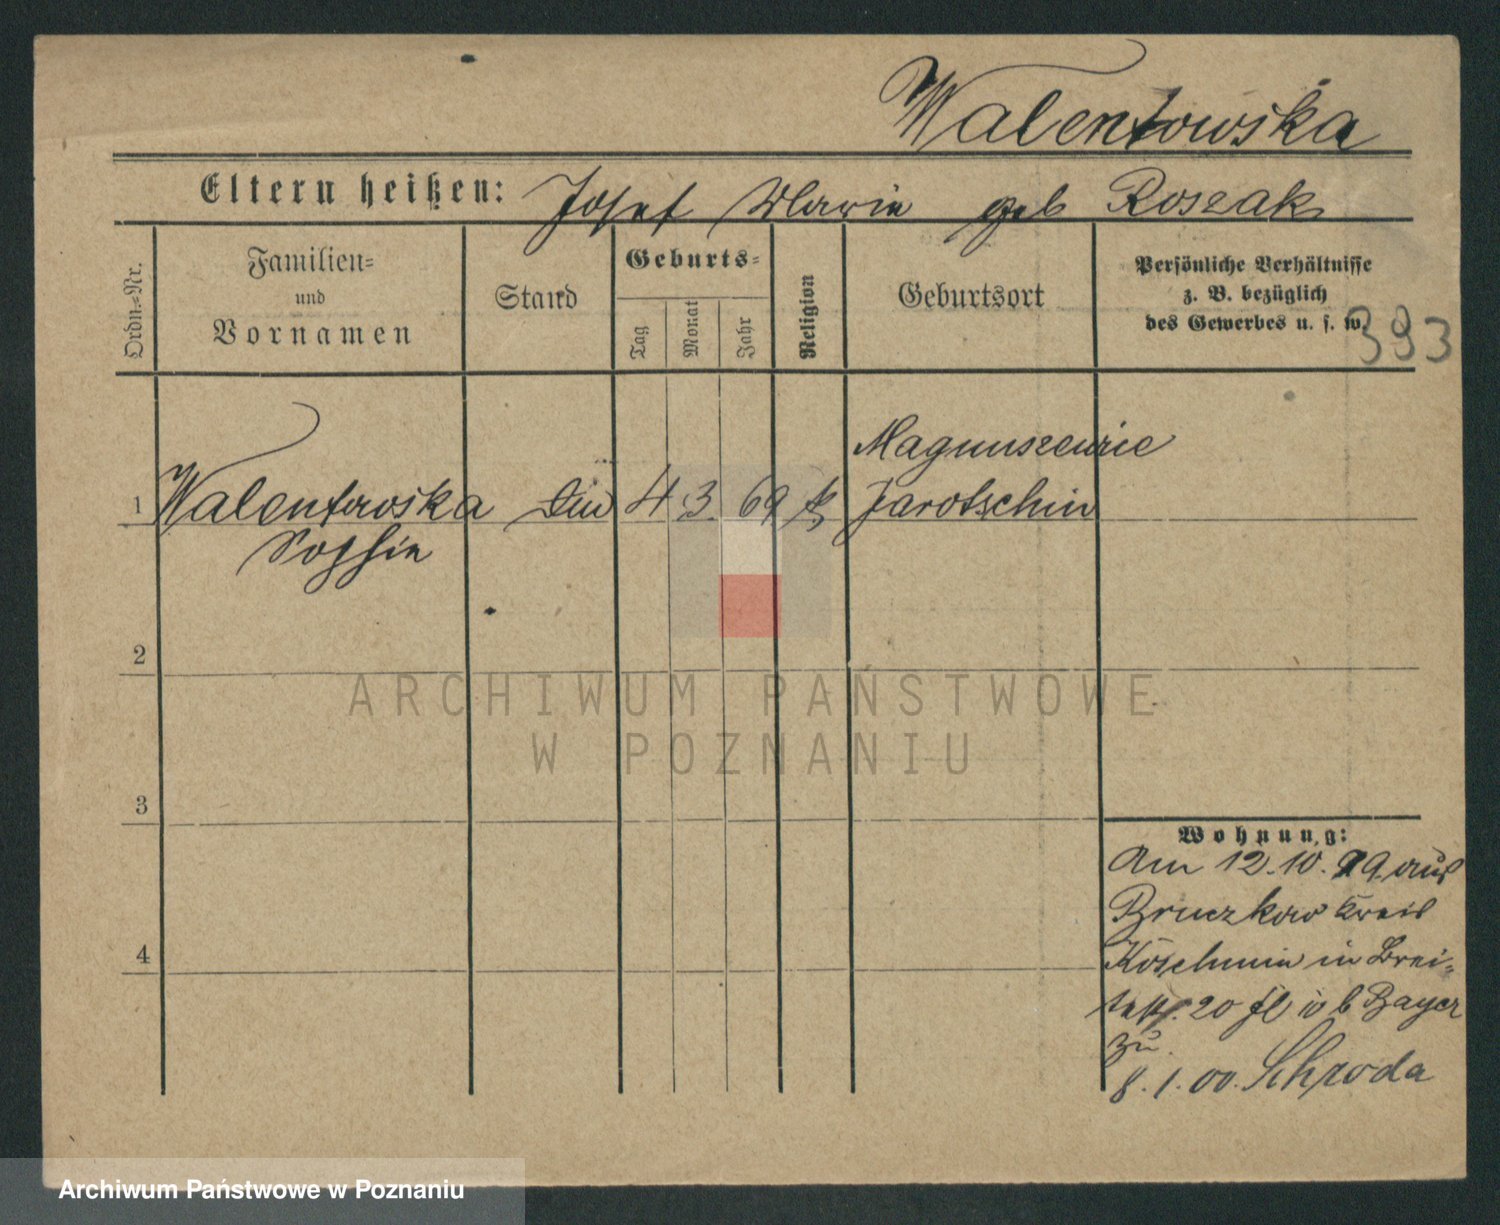 Walentowska
Eltern heißen: Josef Marie geb Roszak
Ordn.=Nr.
Familien=
und
Vornamen
Stand
Geburts=
Tag
Monat
Jahr
Religion
Geburtsort
Persönliche Verhältnisse
z. B. bezüglich
des Gewerbes u. s. w.
393
Magnuszewice
1 Walentowska 4 3 69 k Jarotschin
Sophie
2
ARCHIWUM PAŃSTWOWE
W POZNANIU
3
Wohnung:
Am 12.10.99 aus
Bruczkow Kreis
Koschmin in Brei=
testr. 20 b Bayer
zu.
8.1.00. Schroda
4
Archiwum Państwowe w Poznaniu